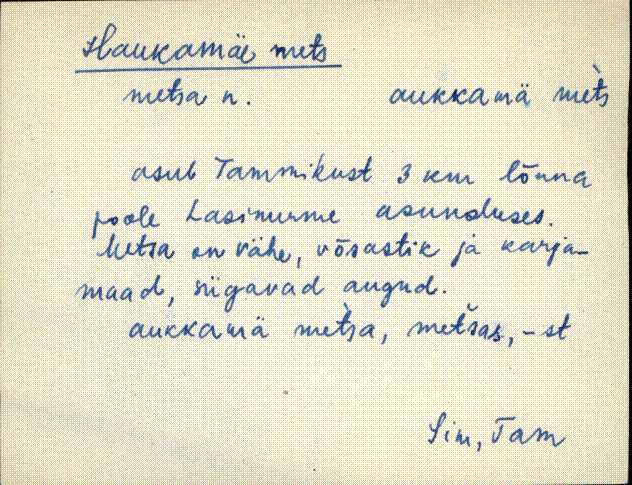 Haukamäe mets
metsa n. aukkamä mèts
asub Tammikust 3 km lõuna
poole Lasinurme asunduses.
Metsa on vähe, võsastik ja karja-
maad, sügavad augud.
aukkamä mètsa, metsas, -st
Sim, Tam